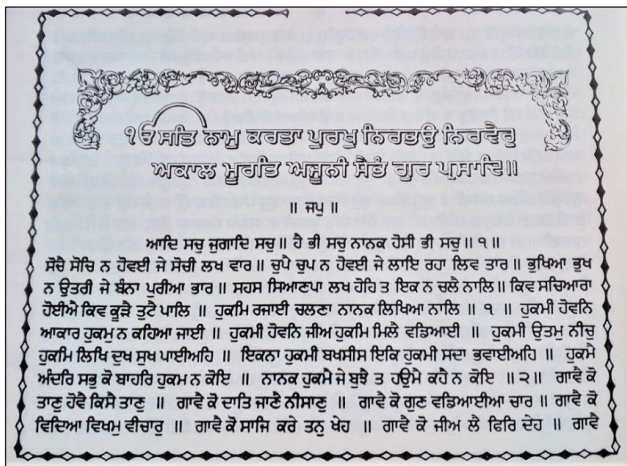 ੴ ਸਤਿ ਨਾਮੁ ਕਰਤਾ ਪੁਰਖੁ ਨਿਰਭਉ ਨਿਰਵੈਰੁ
ਅਕਾਲ ਮੂਰਤਿ ਅਜੂਨੀ ਸੈਭੰ ਗੁਰ ਪ੍ਰਸਾਦਿ॥
॥ ਜਪੁ ॥
ਆਦਿ ਸਚੁ ਜੁਗਾਦਿ ਸਚੁ॥ ਹੈ ਭੀ ਸਚੁ ਨਾਨਕ ਹੋਸੀ ਭੀ ਸਚੁ॥੧॥
ਸੋਚੈ ਸੋਚਿ ਨ ਹੋਵਈ ਜੇ ਸੋਚੀ ਲਖ ਵਾਰ॥ ਚੁਪੈ ਚੁਪ ਨ ਹੋਵਈ ਜੇ ਲਾਇ ਰਹਾ ਲਿਵ ਤਾਰ॥ ਭੁਖਿਆ ਭੁਖ
ਨ ਉਤਰੀ ਜੇ ਬੰਨਾ ਪੁਰੀਆ ਭਾਰ॥ ਸਹਸ ਸਿਆਣਪਾ ਲਖ ਹੋਹਿ ਤ ਇਕ ਨ ਚਲੈ ਨਾਲਿ॥ ਕਿਵ ਸਚਿਆਰਾ
ਹੋਈਐ ਕਿਵ ਕੂੜੈ ਤੁਟੈ ਪਾਲਿ ॥ ਹੁਕਮਿ ਰਜਾਈ ਚਲਣਾ ਨਾਨਕ ਲਿਖਿਆ ਨਾਲਿ ॥ ੧ ॥ ਹੁਕਮੀ ਹੋਵਨਿ
ਆਕਾਰ ਹੁਕਮੁ ਨ ਕਹਿਆ ਜਾਈ ॥ ਹੁਕਮੀ ਹੋਵਨਿ ਜੀਅ ਹੁਕਮਿ ਮਿਲੈ ਵਡਿਆਈ ॥ ਹੁਕਮੀ ਉਤਮੁ ਨੀਚੁ
ਹੁਕਮਿ ਲਿਖਿ ਦੁਖ ਸੁਖ ਪਾਈਅਹਿ ॥ ਇਕਨਾ ਹੁਕਮੀ ਬਖਸੀਸ ਇਕਿ ਹੁਕਮੀ ਸਦਾ ਭਵਾਈਅਹਿ ॥ ਹੁਕਮੈ
ਅੰਦਰਿ ਸਭੁ ਕੋ ਬਾਹਰਿ ਹੁਕਮ ਨ ਕੋਇ ॥ ਨਾਨਕ ਹੁਕਮੈ ਜੇ ਬੁਝੈ ਤ ਹਉਮੈ ਕਹੈ ਨ ਕੋਇ ॥੨॥ ਗਾਵੈ ਕੋ
ਤਾਣੁ ਹੋਵੈ ਕਿਸੈ ਤਾਣੁ ॥ ਗਾਵੈ ਕੋ ਦਾਤਿ ਜਾਣੈ ਨੀਸਾਣੁ ॥ ਗਾਵੈ ਕੋ ਗੁਣ ਵਡਿਆਈਆ ਚਾਰ ॥ ਗਾਵੈ ਕੋ
ਵਿਦਿਆ ਵਿਖਮੁ ਵੀਚਾਰੁ ॥ ਗਾਵੈ ਕੋ ਸਾਜਿ ਕਰੇ ਤਨੁ ਖੇਹ ॥ ਗਾਵੈ ਕੋ ਜੀਅ ਲੈ ਫਿਰਿ ਦੇਹ ॥ ਗਾਵੈ